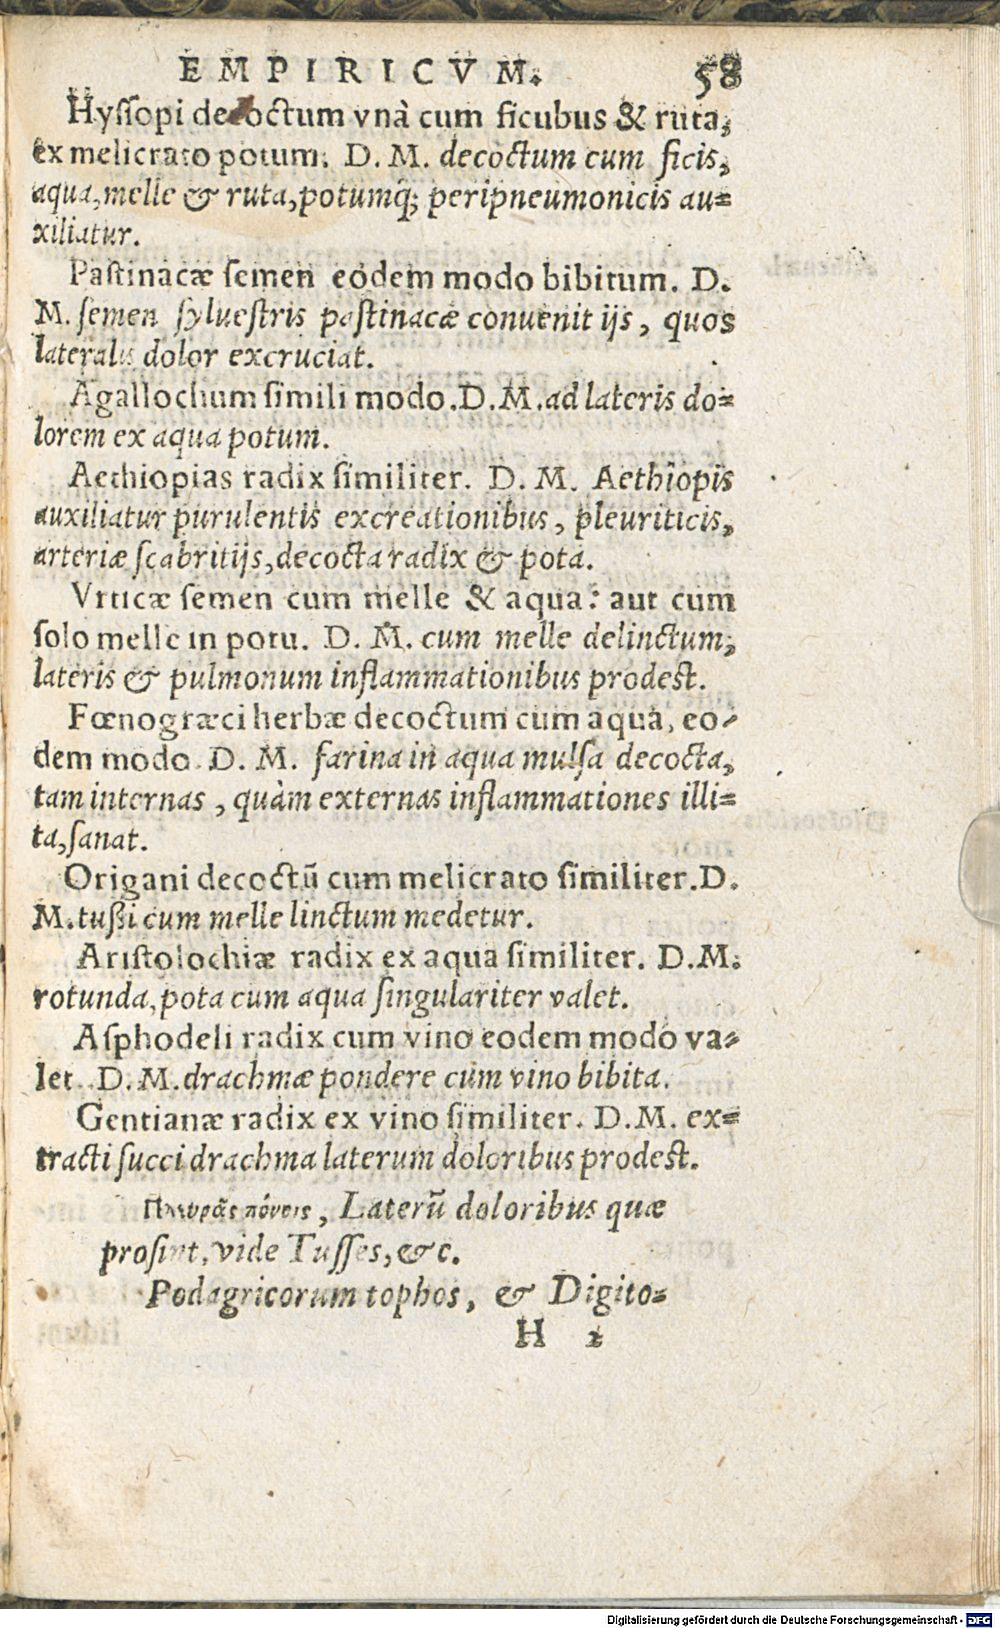 EMPIRICVM. 58
Hyſſopi decoctum vnà cum ficubus & ruta,
ex melicrato potum. D. M. decoctum cum ficis,
aqua, melle & ruta, potumq́; peripneumonicis au-
xiliatur.
Paſtinacæ ſemen eodem modo bibitum. D.
M. ſemen ſylueſtris paſtinacæ conuenit ijs, quos
lateralis dolor excruciat.
Agallochum simili modo. D. M. ad lateris do-
lorem ex aqua potum.
Aethiopias radix ſimiliter. D. M. Aethiopis
auxiliatur purulentis excreationibus, pleuriticis,
arteriæ ſcabritijs, decocta radix & pota.
Vrticæ ſemen cum melle & aqua: aut cum
ſolo melle in potu. D. M. cum melle delinctum,
lateris & pulmonum inflammationibus prodest.
Fœnogræci herbæ decoctum cum aqua, eo-
dem modo. D. M. farina in aqua mulſa decocta,
tam internas, quàm externas inflammationes illi-
ta, ſanat.
Origani decoctū cum melicrato ſimiliter. D.
M. tußi cum melle linctum medetur.
Ariſtolochiæ radix ex aqua ſimiliter. D. M.
rotunda, pota cum aqua ſingulariter valet.
Aſphodeli radix cum vino eodem modo va-
let. D. M. drachmæ pondere cùm vino bibita.
Gentianæ radix ex vino ſimiliter. D. M. ex-
tracti ſucci drachma laterum doloribus prodest.
Πλευρᾶς πόνοις, Laterū doloribus quæ
proſint, vide Tuſſes, &c.
Podagricorum tophos, & Digito-
H 2
Digitalisierung gefördert durch die Deutsche Forschungsgemeinschaft - DFG